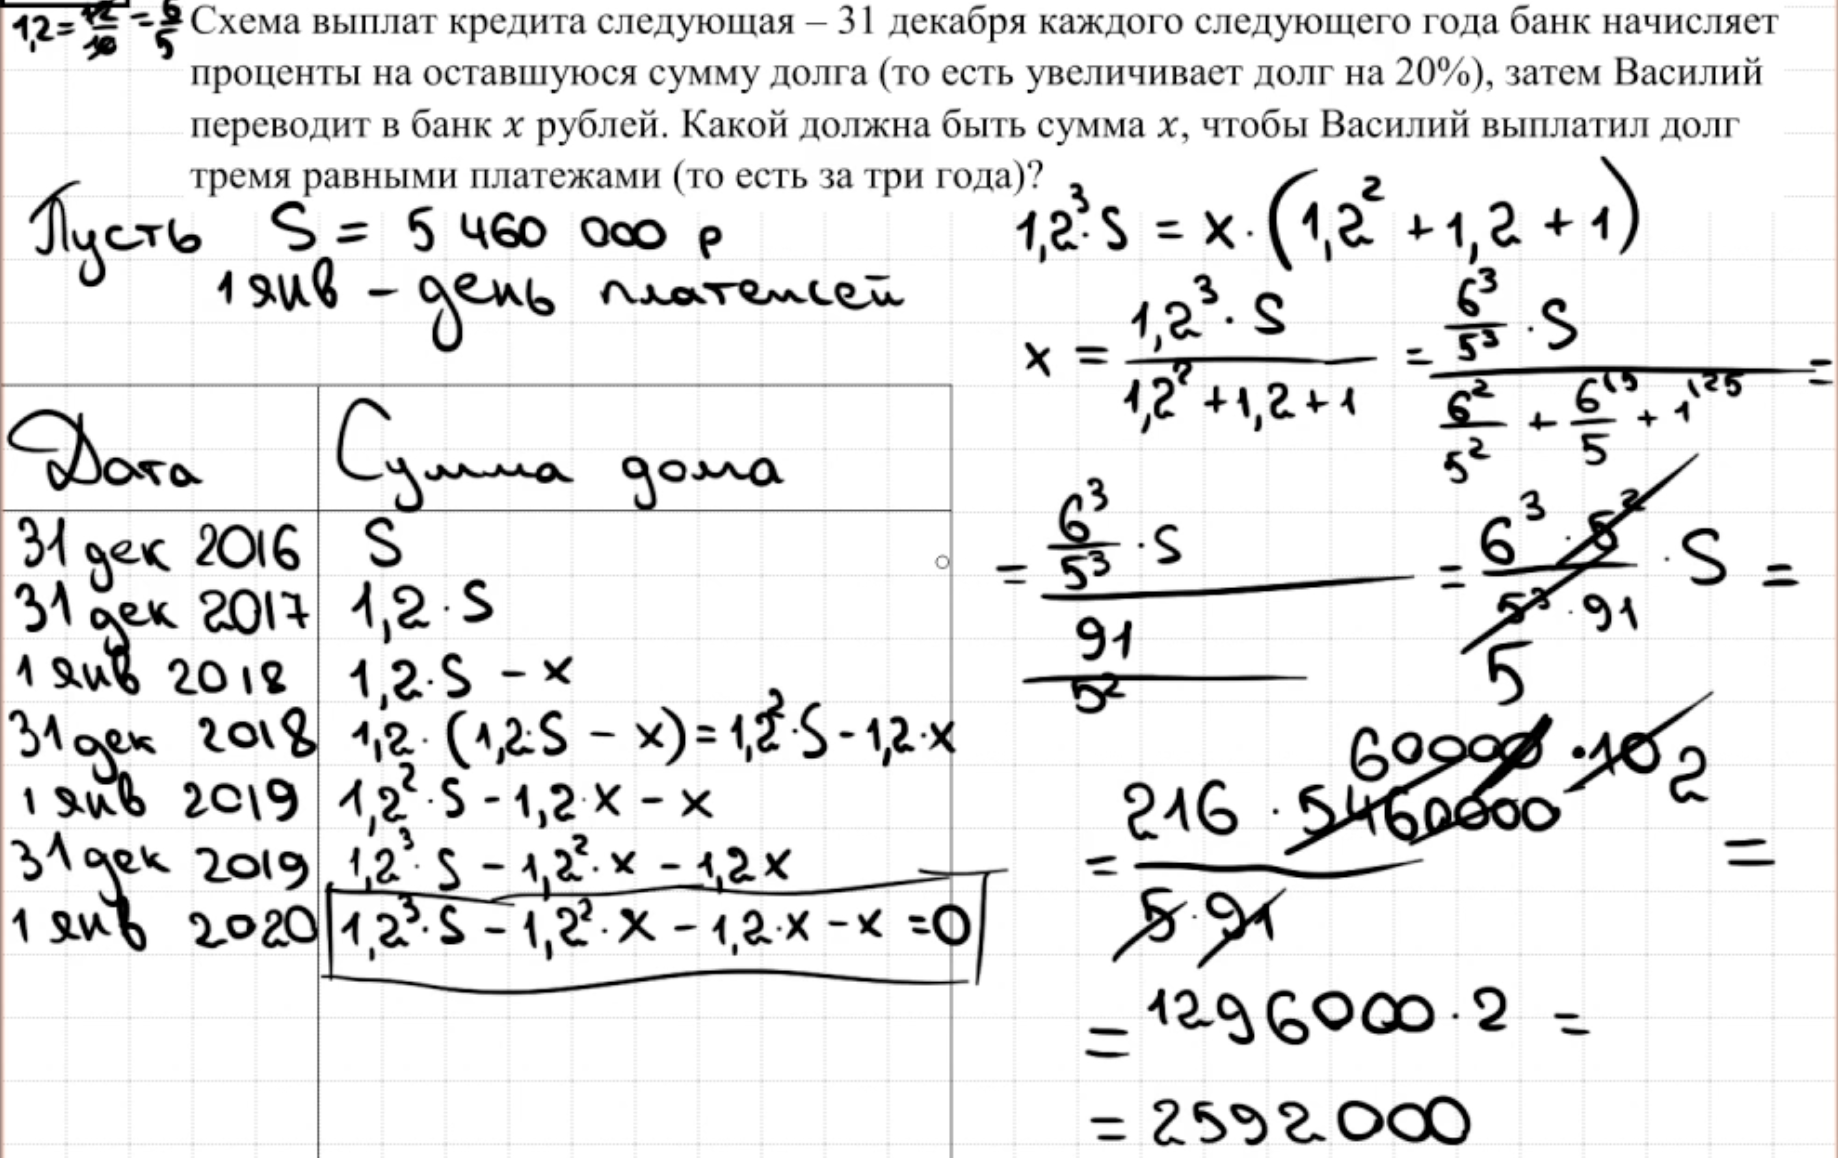 1,2 = 12/10 = 6/5
Схема выплат кредита следующая – 31 декабря каждого следующего года банк начисляет
проценты на оставшуюся сумму долга (то есть увеличивает долг на 20%), затем Василий
переводит в банк x рублей. Какой должна быть сумма x, чтобы Василий выплатил долг
тремя равными платежами (то есть за три года)?
Пусть S = 5 460 000 р
1 янв – день платежей
Дата Сумма долга
31 дек 2016 S
31 дек 2017 1,2·S
1 янв 2018 1,2·S – x
31 дек 2018 1,2·(1,2·S – x) = 1,2²·S – 1,2·x
1 янв 2019 1,2²·S – 1,2·x – x
31 дек 2019 1,2³·S – 1,2²·x – 1,2x
1 янв 2020 1,2³·S – 1,2²·x – 1,2·x – x = 0
1,2³·S = x·(1,2² + 1,2 + 1)
x = (1,2³·S)/(1,2² + 1,2 + 1) = (6³/5³·S)/(6²/5² + 6/5 + 1) =
= (6³/5³·S)/(91/5²) = (6³·5²)/(5³·91)·S =
5
60000 ·10 2
= (216·5460000)/(5·91) =
= 1296000·2 =
= 2592000